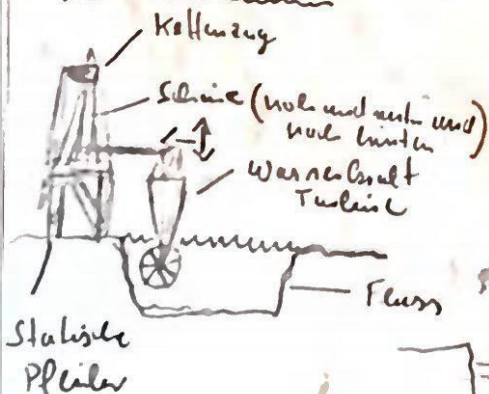 Kettenzug
Schiene (hoch und runter und)
nach hinten
Wasserkraft
Turbine
Fluss
Statische
Pfeiler